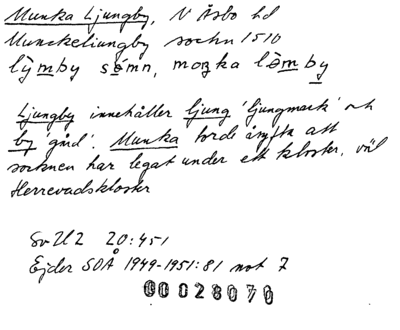 Munka Ljungby, N Åsbo hd
Munckeliungby sochn 1510
lỳmby sémn, moŋka lòmby
Ljungby innehåller ljung 'ljungmark' och
by 'gård'. Munka torde åsyfta att
socknen har legat under ett kloster, väl
Herrevadskloster
SvU2 20:451
Ejder SOÅ 1949-1951:81 not 7
00028070